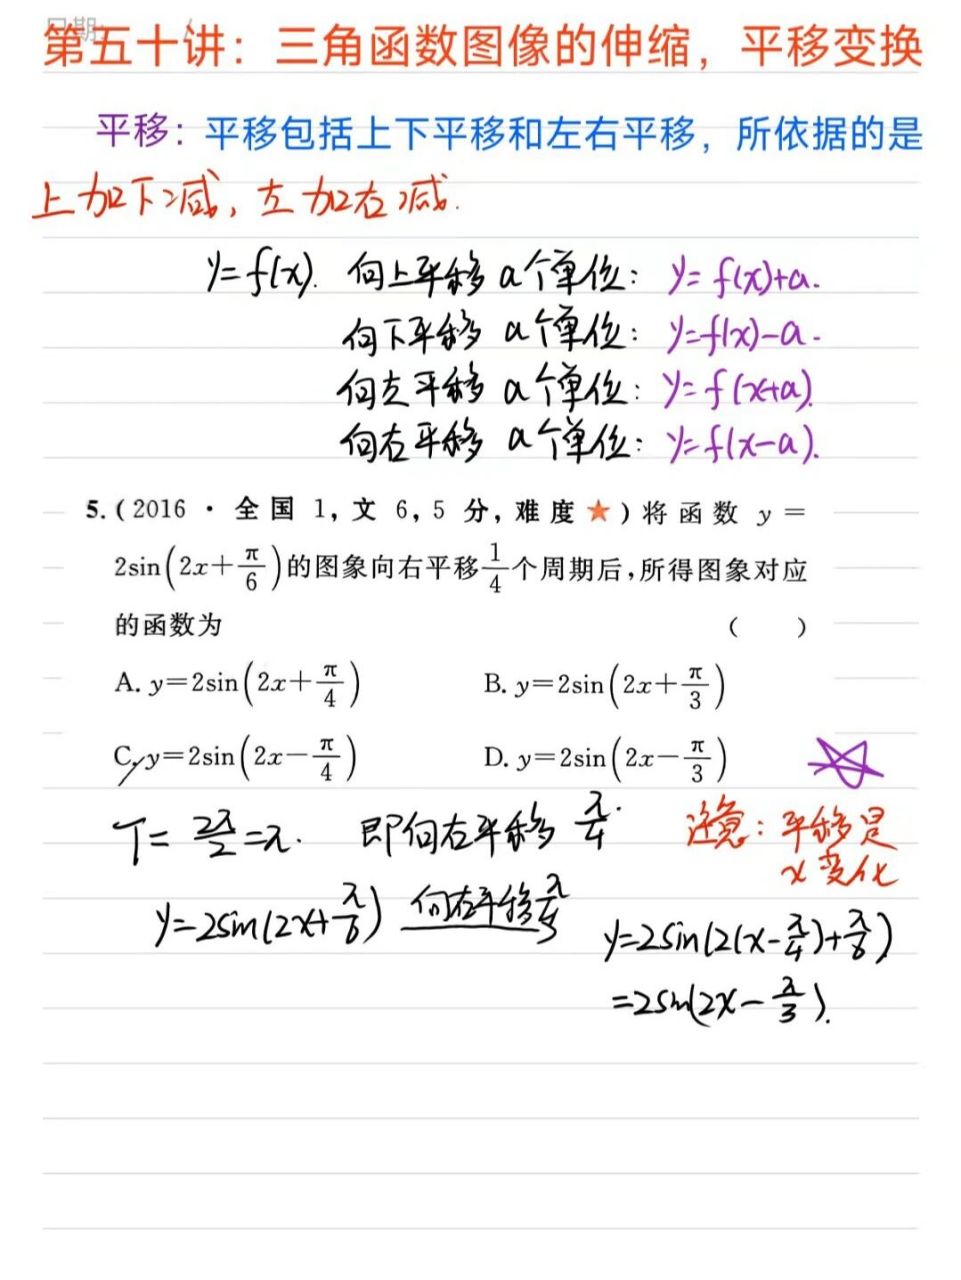 日期:
第五十讲：三角函数图像的伸缩，平移变换
平移：平移包括上下平移和左右平移，所依据的是
上加下减，左加右减.
y=f(x). 向上平移 a个单位： y=f(x)+a.
向下平移 a个单位： y=f(x)-a.
向左平移 a个单位： y=f(x+a).
向右平移 a个单位： y=f(x-a).
5.(2016·全国1,文6,5分,难度★)将函数 y=
2sin(2x+π/6)的图象向右平移1/4个周期后,所得图象对应
的函数为 ( )
A. y=2sin(2x+π/4) B. y=2sin(2x+π/3)
C. y=2sin(2x-π/4) D. y=2sin(2x-π/3)
T=2π/2=π. 即向右平移 π/4.
注意：平移是
x变化
y=2sin(2x+π/6) 向右平移π/4
y=2sin(2(x-π/4)+π/6)
=2sin(2x-π/3).